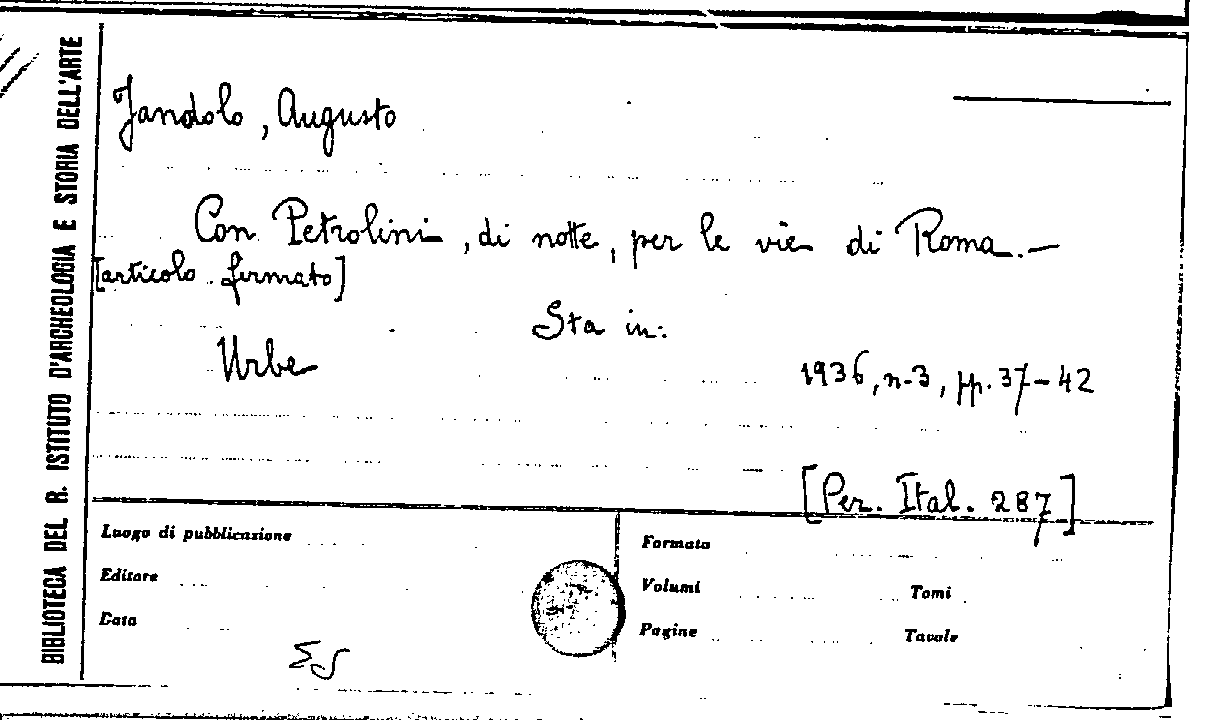 BIBLIOTECA DEL R. ISTITUTO D'ARCHEOLOGIA E STORIA DELL'ARTE
Jandolo, Augusto
Con Petrolini, di notte, per le vie di Roma.—
[articolo firmato]
Sta in:
Urbe
1936, n-3, pp. 37-42
[Per. Ital. 287]
Luogo di pubblicazione
Editore
Data
Formato
Volumi Tomi
Pagine Tavole